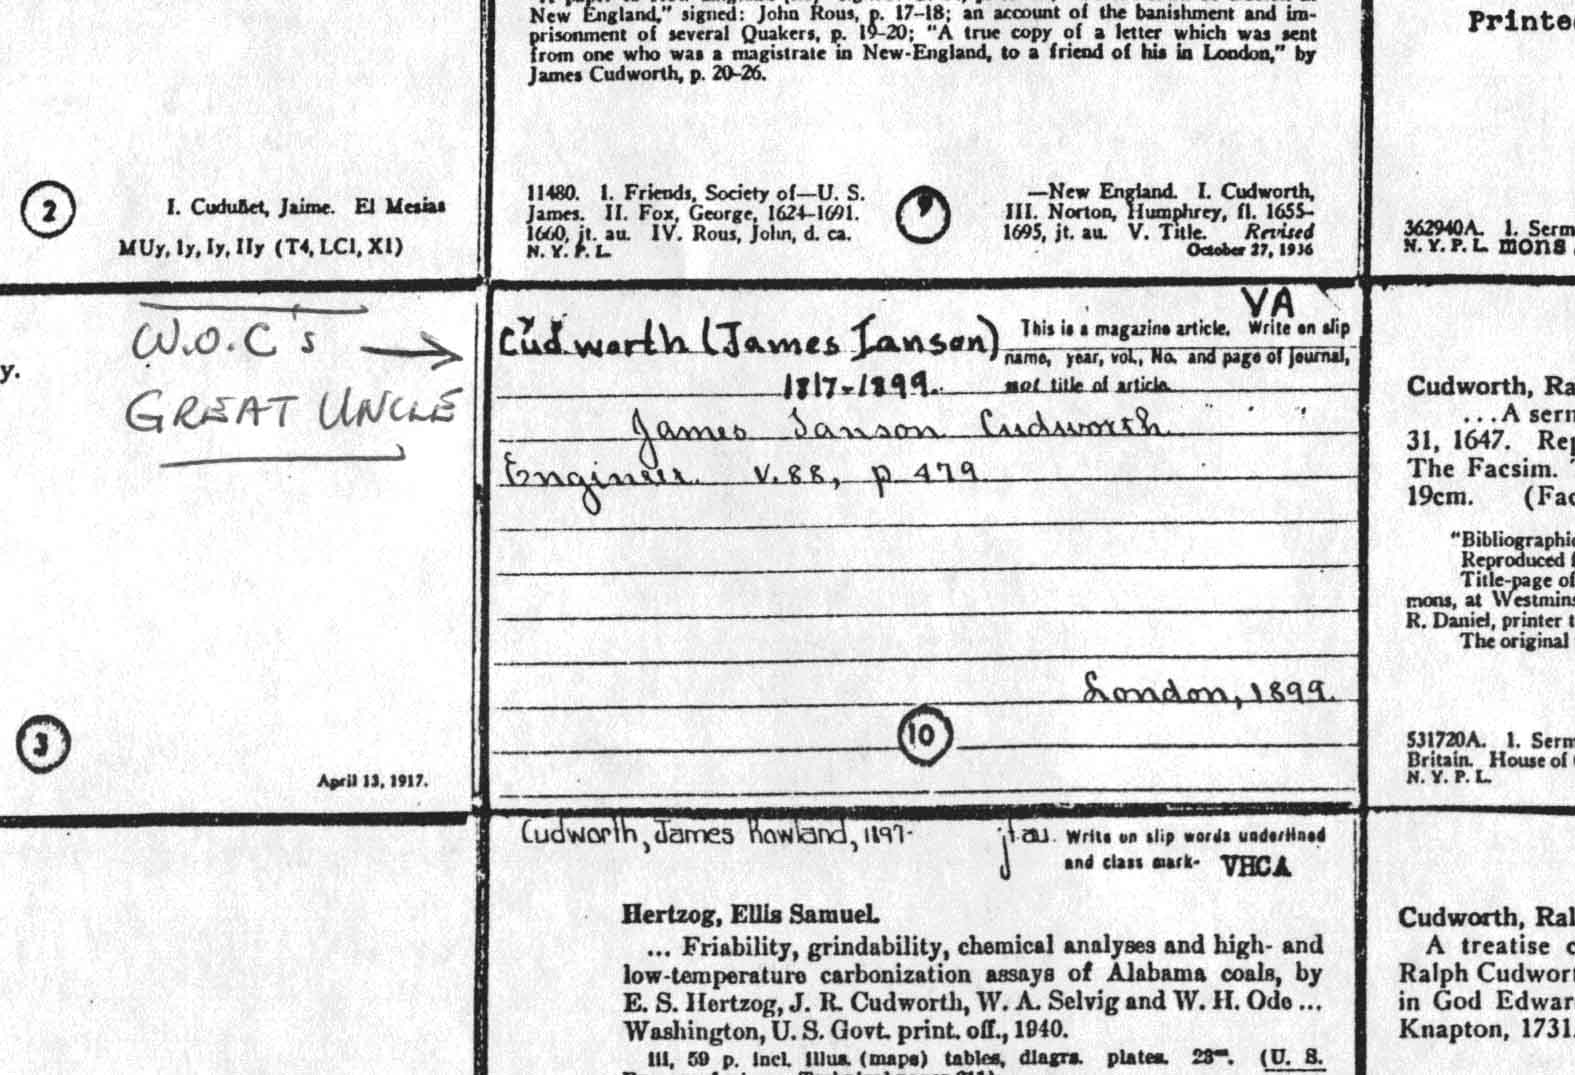 New England," signed: John Rous, p. 17–18; an account of the banishment and im-
prisonment of several Quakers, p. 19–20; "A true copy of a letter which was sent
from one who was a magistrate in New-England, to a friend of his in London," by
James Cudworth, p. 20–26.
2
I. Cuduñet, Jaime. El Mesias
MUy, Iy, Iy, IIy (T4, LCI, XI)
11480. I. Friends, Society of—U. S.
James. II. Fox, George, 1624–1691.
1660, jt. au. IV. Rous, John, d. ca.
N. Y. P. L.
9
—New England. I. Cudworth,
III. Norton, Humphrey, fl. 1655–
1695, jt. au. V. Title. Revised
October 27, 1936
Printed
362940A. 1. Serm
N. Y. P. L. mons
y.
W.O.C's →
GREAT UNCLE
3
April 13, 1917.
VA
Cudworth (James Ianson)
1817-1899.
This is a magazine article. Write on slip
name, year, vol., No. and page of journal,
not title of article.
James Ianson Cudworth
Engineer. v.88, p 479.
London, 1899.
10
Cudworth, Ra
...A serm
31, 1647. Rep
The Facsim. T
19cm. (Fac
"Bibliographic
Reproduced f
Title-page of
mons, at Westmins
R. Daniel, printer t
The original
531720A. 1. Serm
Britain. House of
N. Y. P. L.
Cudworth, James Rowland, 1897-
jt au. Write on slip words underlined
and class mark- VHCA
Hertzog, Ellis Samuel.
... Friability, grindability, chemical analyses and high- and
low-temperature carbonization assays of Alabama coals, by
E. S. Hertzog, J. R. Cudworth, W. A. Selvig and W. H. Ode ...
Washington, U. S. Govt. print. off., 1940.
iii, 59 p. incl. illus. (maps) tables, diagrs. plates. 23cm. (U. S.
Cudworth, Ral
A treatise c
Ralph Cudwort
in God Edwar
Knapton, 1731.